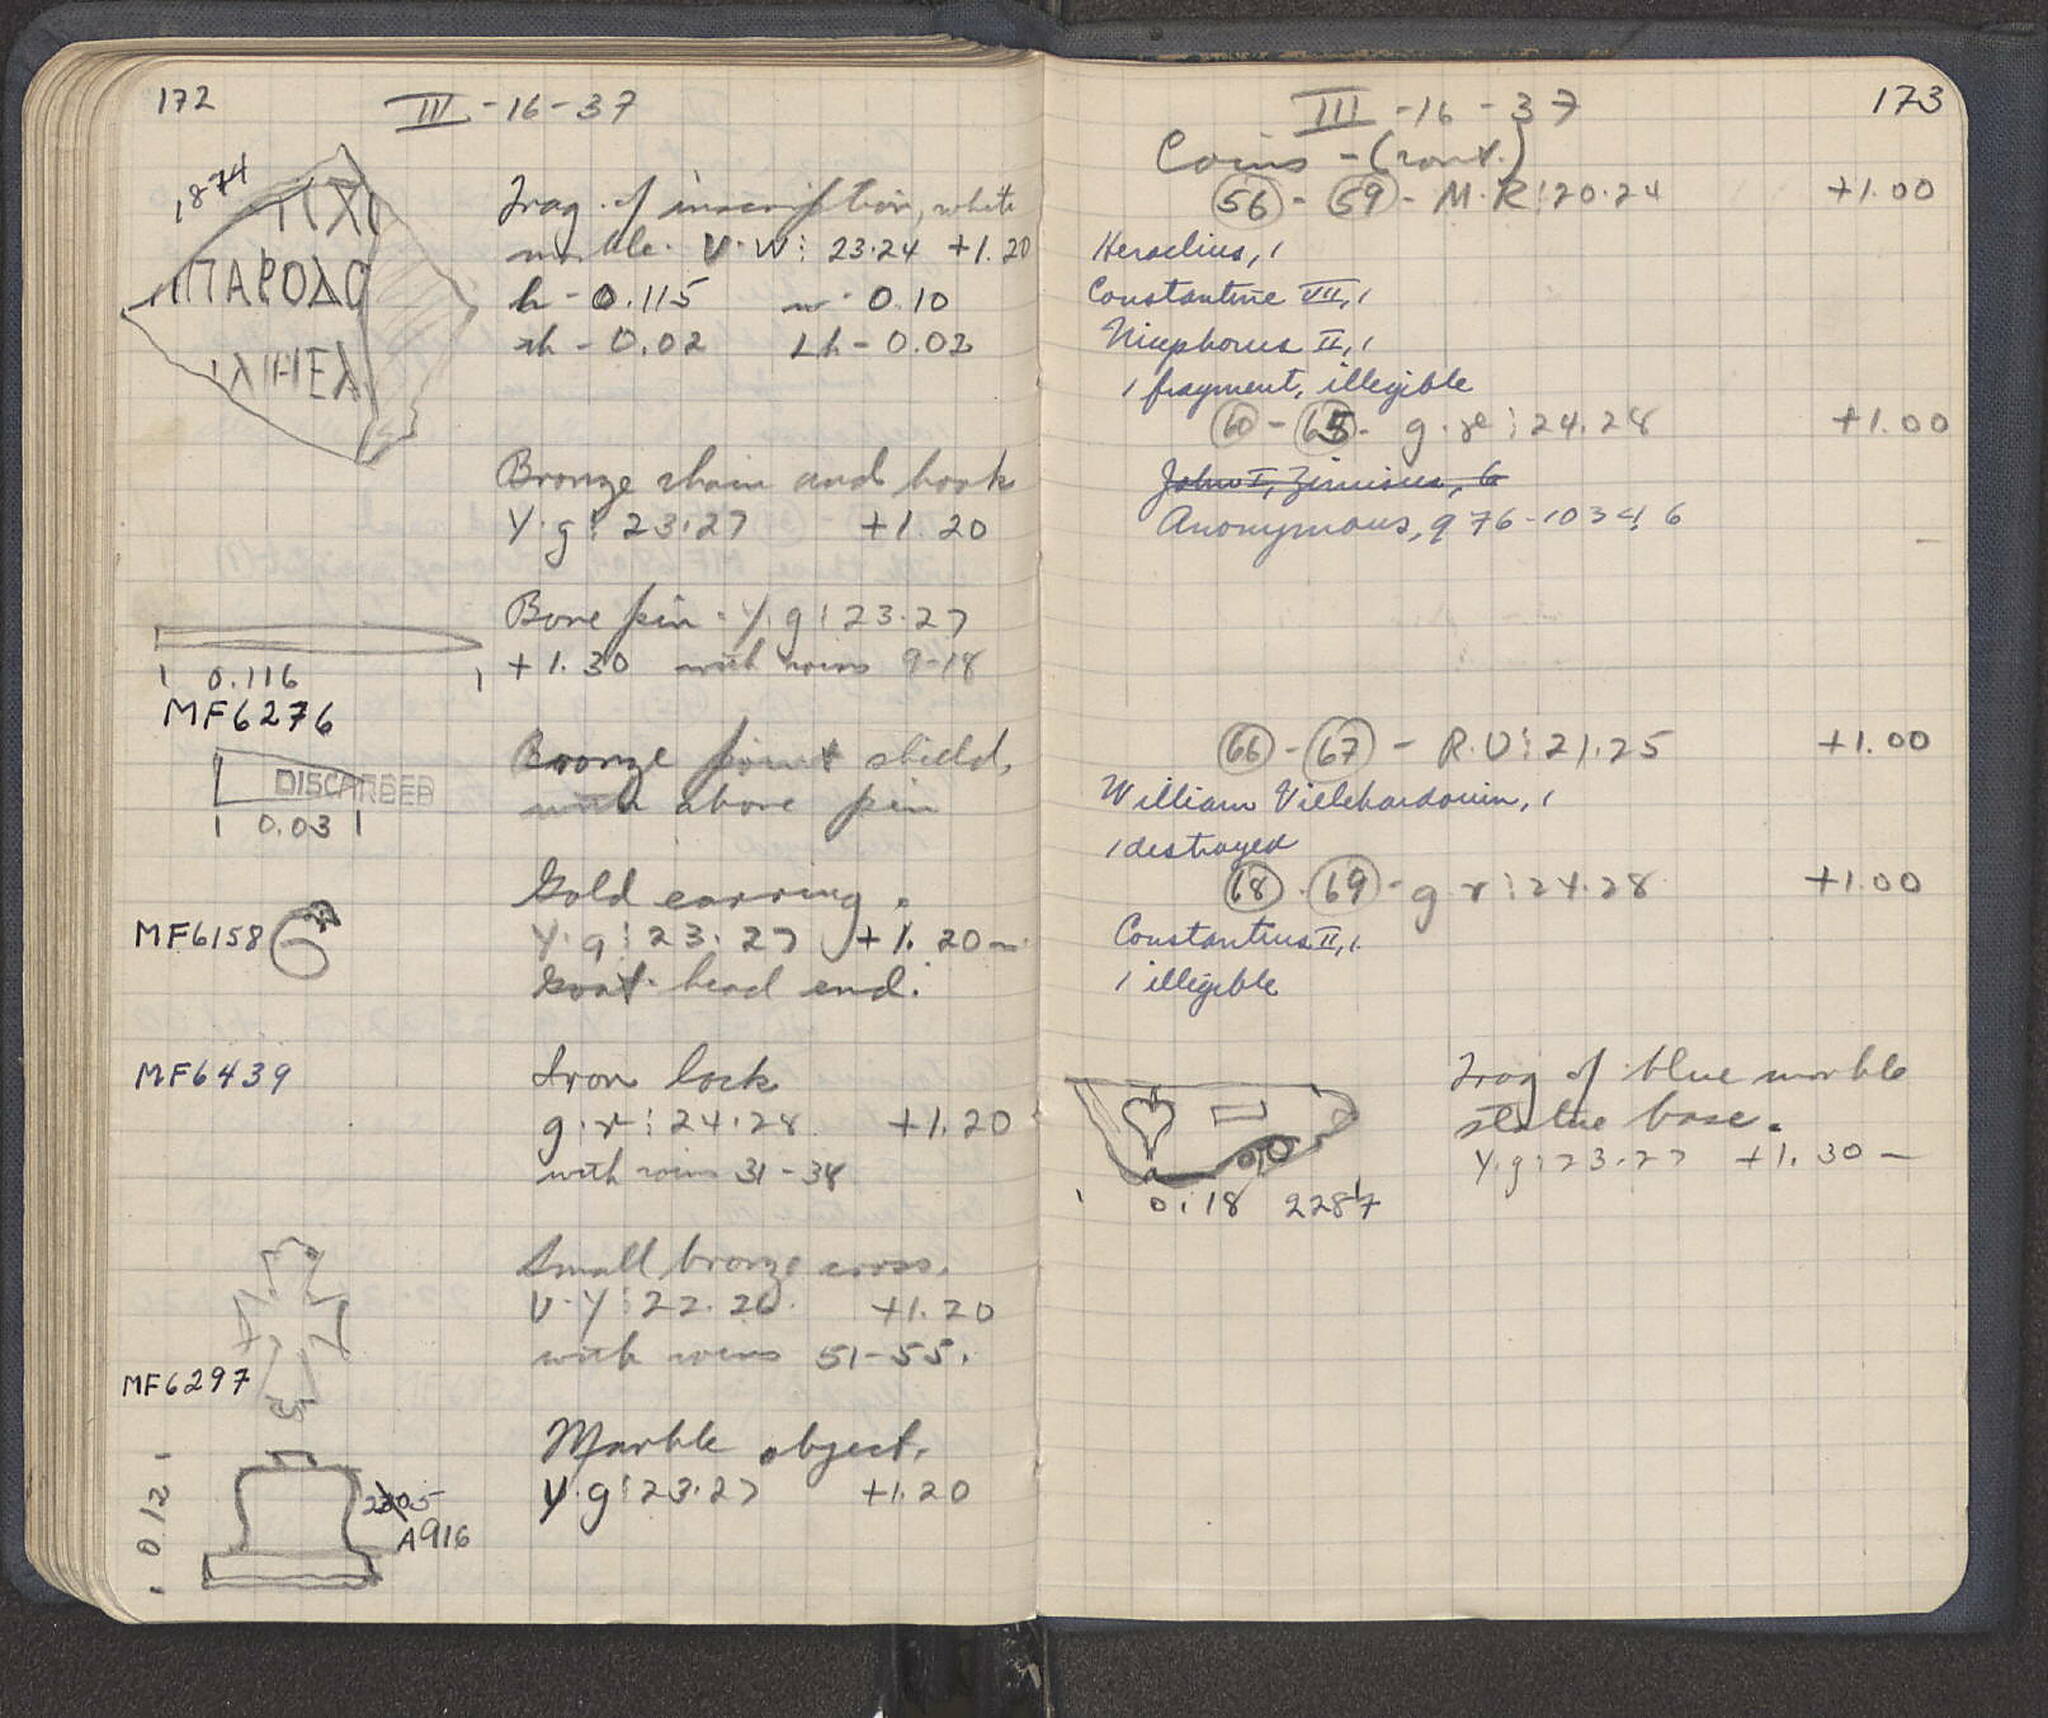 172
III - 16 - 37
1874
ΠΑΡΟΔΟ
ΛΗΕΛ
Frag. of inscription, white
marble. V·W: 23·24 +1.20
h - 0.115 w - 0.10
th - 0.02 Lh - 0.02
Bronze chain and hook
Y·g: 23·27 +1.20
Bone pin - Y·g: 23·27
+1.30 with coins 9-18
0.116
MF6276
Bronze point shield,
with above pin
DISCARDED
0.03
Gold earring.
Y·g: 23·27 +1.20-
Goat head end.
MF6158
MF6439
Iron lock
g·r: 24·28 +1.20
with coins 31-38
Small bronze cross.
V·Y: 22·26 +1.20
with coins 51-55.
MF6297
Marble object.
Y·g: 23·27 +1.20
0.12
A916
III - 16 - 37
173
Coins - (cont.)
56 - 59 - M·R: 20·24 +1.00
Heraclius, 1
Constantine VII, 1
Nicephorus II, 1
1 fragment, illegible
60 - 65 - g·r: 24·28 +1.00
John I, Zimisces, 6
Anonymous, 976-1034, 6
66 - 67 - R·U: 21·25 +1.00
William Villehardouin, 1
1 destroyed
68 - 69 - g·r: 24·28 +1.00
Constantius II, 1
1 illegible
Frag of blue marble
statue base.
Y·g: 23·27 +1.30 -
0.18 2287